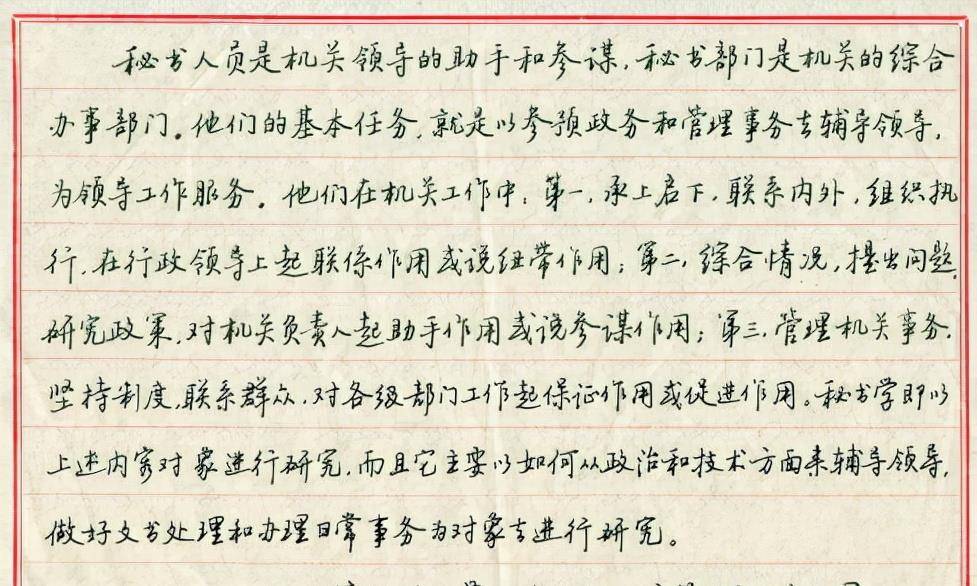 秘书人员是机关领导的助手和参谋，秘书部门是机关的综合
办事部门。他们的基本任务，就是以参预政务和管理事务去辅导领导，
为领导工作服务。他们在机关工作中：第一，承上启下，联系内外，组织执
行，在行政领导上起联係作用或说纽带作用；第二，综合情况，提出问题，
研究政策，对机关负责人起助手作用或说参谋作用；第三，管理机关事务，
坚持制度，联系群众，对各级部门工作起保证作用或促进作用。秘书学即以
上述内容对象进行研究，而且它主要以如何从政治和技术方面来辅导领导，
做好文书处理和办理日常事务为对象去进行研究。